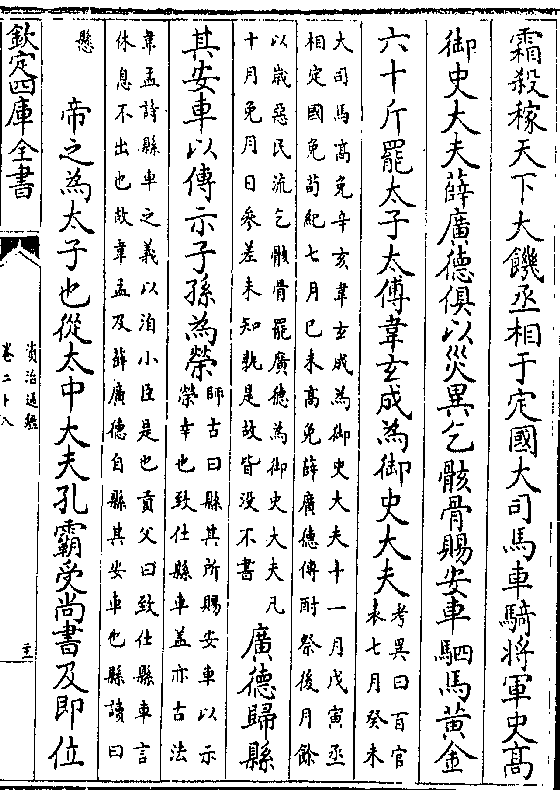 霜殺稼天下大饑丞相于定國大司馬車騎將軍史高
御史大夫薛廣德俱以災異乞骸骨賜安車駟馬黃金
六十斤罷太子太傅韋玄成為御史大夫
考異曰百官
表七月癸未
大司馬高免辛亥韋玄成為御史大夫十一月戊寅丞
相定國免荀紀七月己未高免薛廣德傳酎祭後月餘
以歲惡民流乞骸骨罷廣德為御史大夫凡
十月免月日參差未知孰是故皆没不書
廣德歸縣
其安車以傳示子孫為榮
師古曰縣其所賜安車以示
榮幸也致仕縣車蓋亦古法
韋孟詩縣車之義以洎小臣是也貢父曰致仕縣車言
休息不出也故韋孟及薛廣德自縣其安車也縣讀曰
懸
帝之為太子也從太中大夫孔霸受尚書及即位
欽定四庫全書
資治通鑑
卷二十八